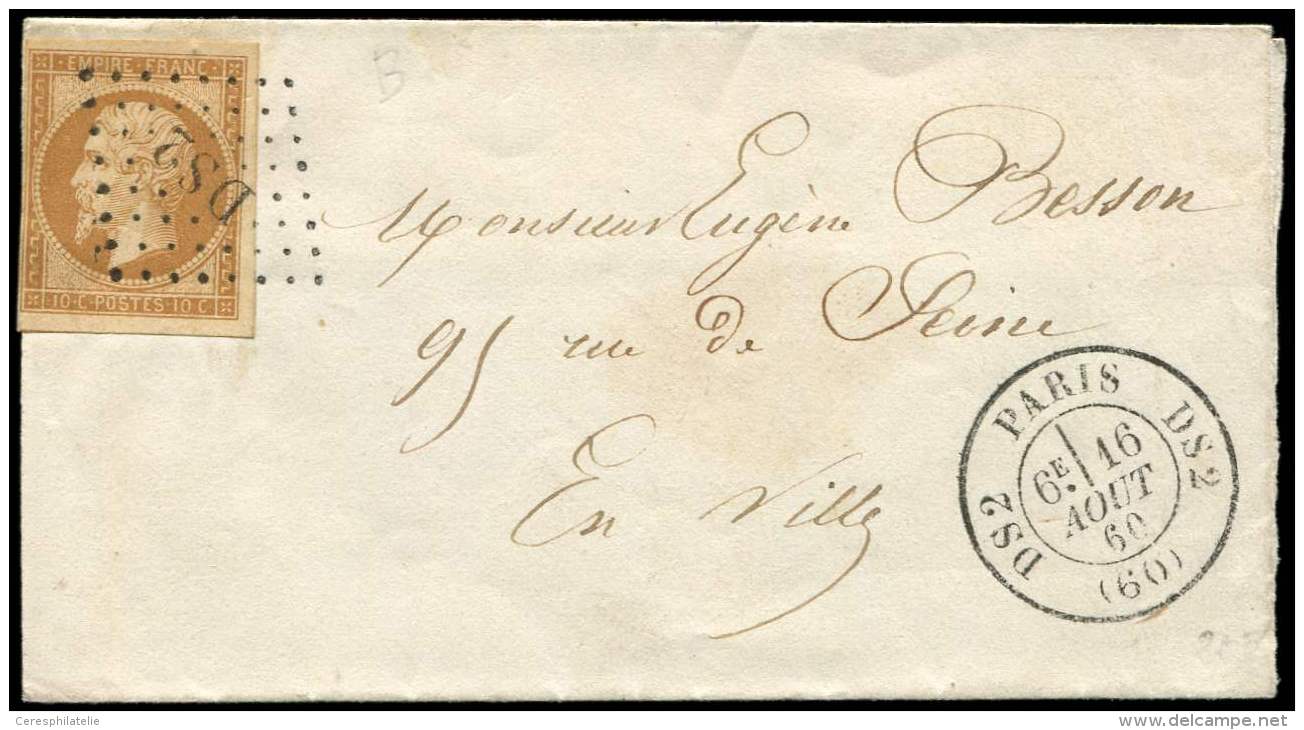 EMPIRE · FRANC ·
10 · C · POSTES · 10 C ·
DS2
B
Monsieur Eugène Besson
95 rue de Seine
En Ville
DS2 PARIS DS2
6E 16
AOUT
60
(60)
Ceresphilatelie
www.delcampe.net